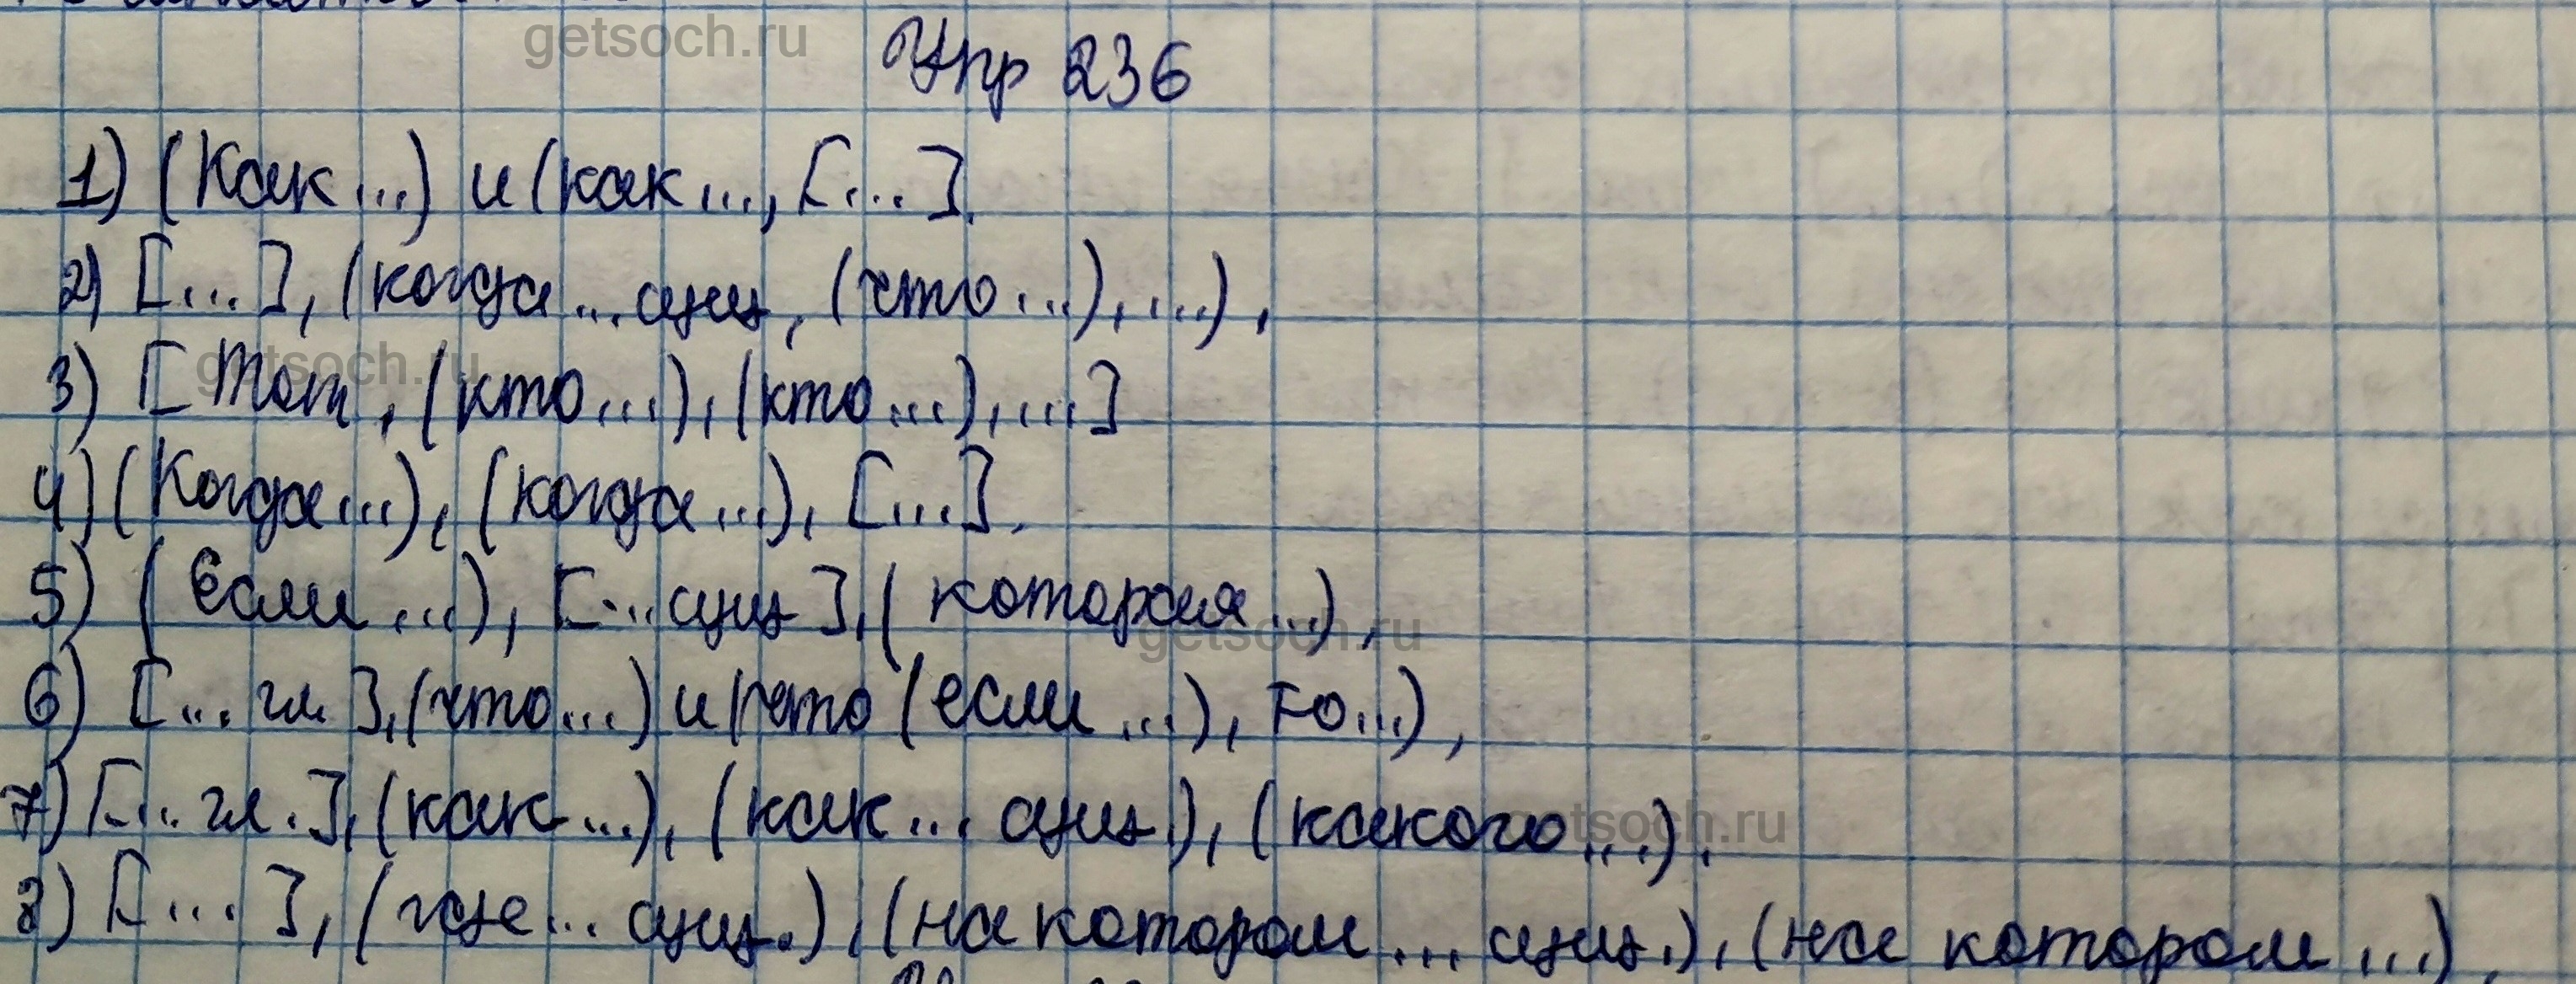 getsoch.ru
Упр 236
1) (Как...) и (как..., [...].
2) [...], (когда... сущ, (что...), ...),
getsoch.ru
3) [Тот, (кто...), (кто...), ...]
4) (Когда...), (когда...), [...].
5) (Если...), [...сущ], (которая...),
getsoch.ru
6) [... гл.], (что...) и (что (если...), то...),
7) [... гл.], (как...), (как... сущ.), (какого...).
getsoch.ru
8) [...], (где... сущ.), (на котором... сущ.), (на котором...),